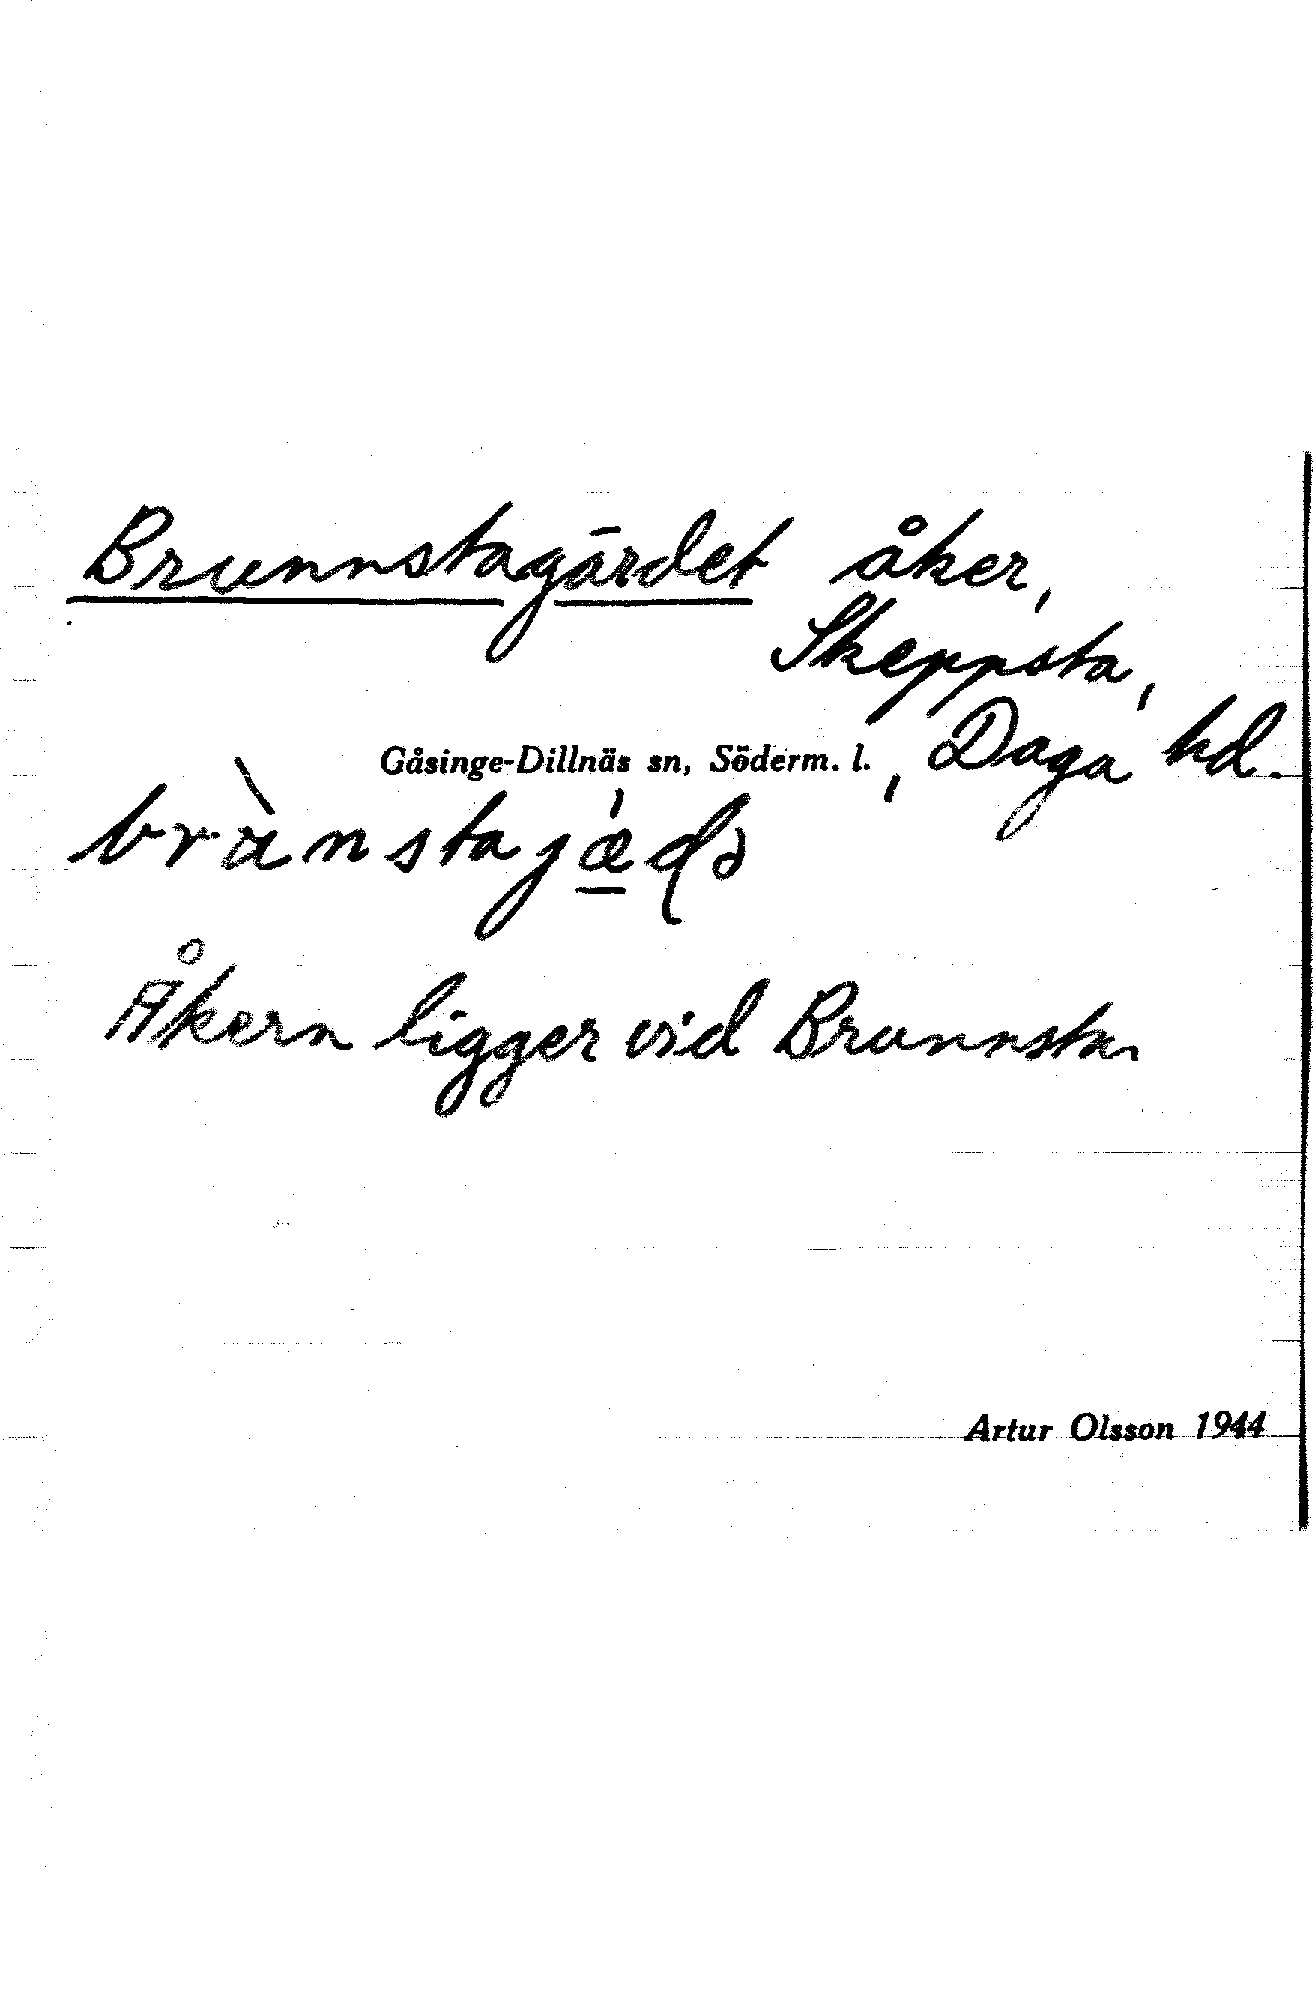 Brunnstagärdet åker,
Skeppsta,
Gåsinge-Dillnäs sn, Söderm. l., Daga hd.
Åkern ligger vid Brunnsta
Artur Olsson 1944